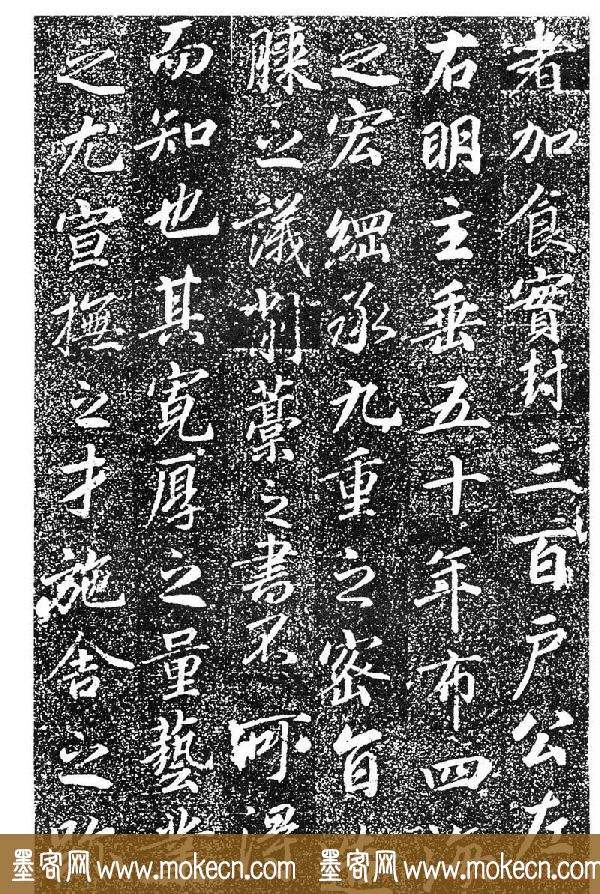 者加食實封三百戶公左
右明主垂五十年布四海
之宏綱承九重之密旨
膝之議削藁之書不可得
而知也其寬厚之量藝業
之尤宣撫之才施舍之
墨客网 www.mokecn.com 墨客网 www.mokecn.com